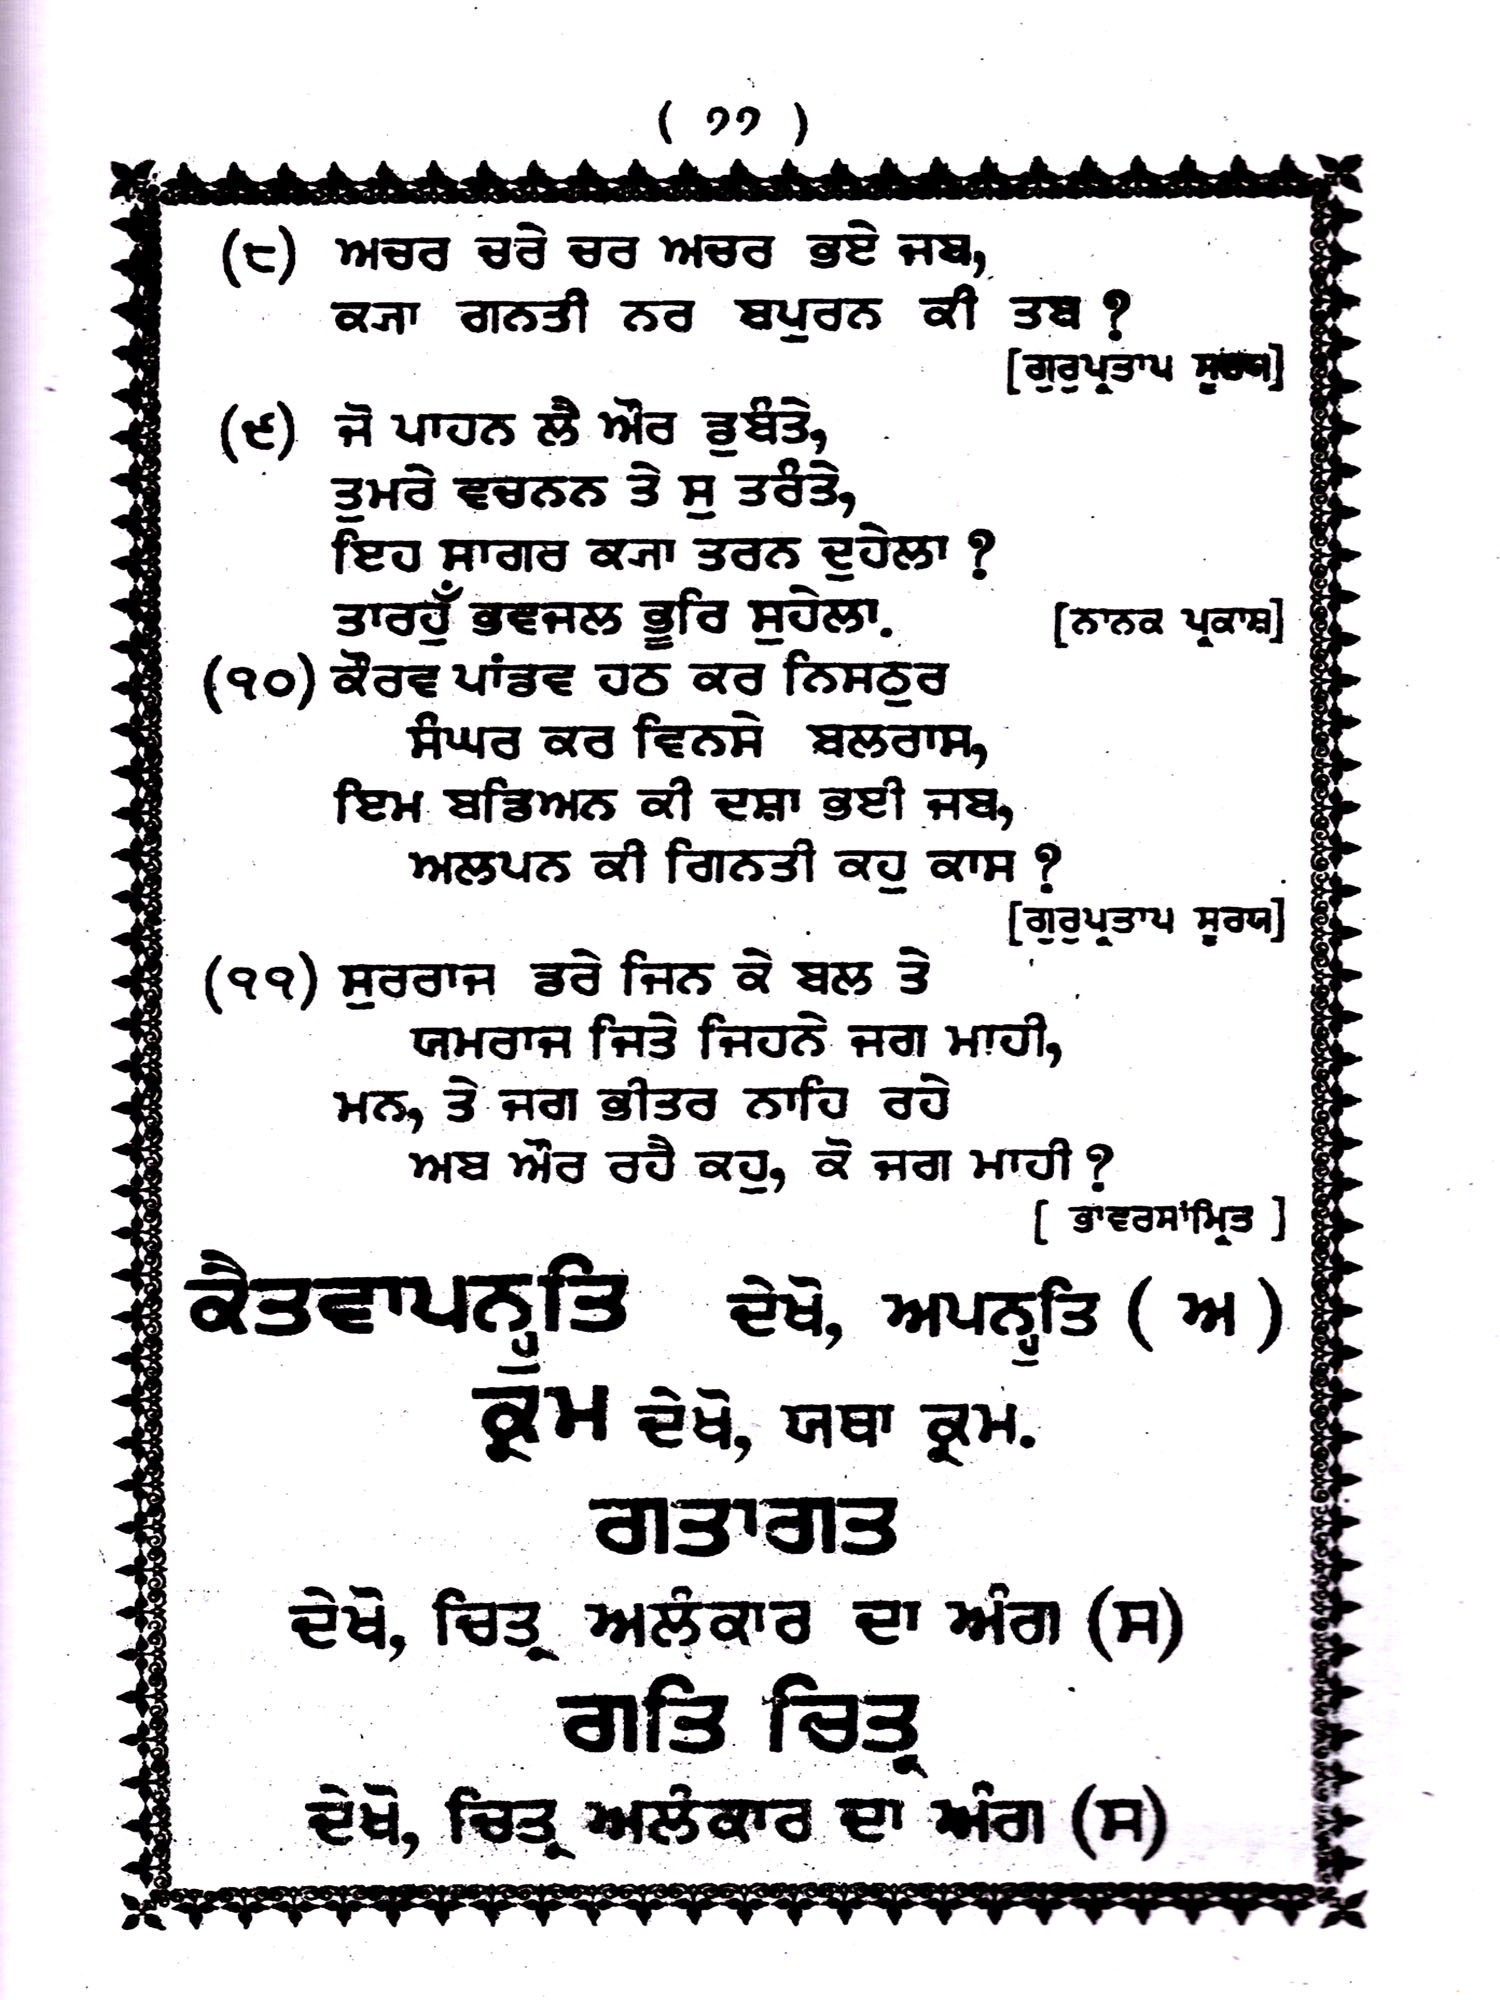 ( ੭੭ )
(੮) ਅਚਰ ਚਰੇ ਚਰ ਅਚਰ ਭਏ ਜਬ,
ਕ੍ਯਾ ਗਨਤੀ ਨਰ ਬਪੁਰਨ ਕੀ ਤਬ ?
[ਗੁਰੁਪ੍ਰਤਾਪ ਸੂਰਯ]
(੯) ਜੋ ਪਾਹਨ ਲੈ ਔਰ ਡੁਬੰਤੇ,
ਤੁਮਰੇ ਵਚਨਨ ਤੇ ਸੁ ਤਰੰਤੇ,
ਇਹ ਸਾਗਰ ਕ੍ਯਾ ਤਰਨ ਦੁਹੇਲਾ ?
ਤਾਰਹੁਁ ਭਵਜਲ ਭੂਰਿ ਸੁਹੇਲਾ. [ਨਾਨਕ ਪ੍ਰਕਾਸ਼]
(੧੦) ਕੌਰਵ ਪਾਂਡਵ ਹਠ ਕਰ ਨਿਸਠੁਰ
ਸੰਘਰ ਕਰ ਵਿਨਸੇ ਬਲਰਾਸ,
ਇਮ ਬਡਿਅਨ ਕੀ ਦਸ਼ਾ ਭਈ ਜਬ,
ਅਲਪਨ ਕੀ ਗਿਨਤੀ ਕਹੁ ਕਾਸ ?
[ਗੁਰੁਪ੍ਰਤਾਪ ਸੂਰਯ]
(੧੧) ਸੁਰਰਾਜ ਡਰੇ ਜਿਨ ਕੇ ਬਲ ਤੇ
ਯਮਰਾਜ ਜਿਤੇ ਜਿਹਨੇ ਜਗ ਮਾਹੀ,
ਮਨ, ਤੇ ਜਗ ਭੀਤਰ ਨਾਹਿ ਰਹੇ
ਅਬ ਔਰ ਰਹੈ ਕਹੁ, ਕੋ ਜਗ ਮਾਹੀ ?
[ ਭਾਵਰਸਾਂਮ੍ਰਿਤ ]
ਕੈਤਵਾਪਨ੍ਹੁਤਿ ਦੇਖੋ, ਅਪਨ੍ਹੁਤਿ ( ਅ )
ਕ੍ਰਮ ਦੇਖੋ, ਯਥਾ ਕ੍ਰਮ.
ਗਤਾਗਤ
ਦੇਖੋ, ਚਿਤ੍ਰ ਅਲੰਕਾਰ ਦਾ ਅੰਗ (ਸ)
ਗਤਿ ਚਿਤ੍ਰ
ਦੇਖੋ, ਚਿਤ੍ਰ ਅਲੰਕਾਰ ਦਾ ਅੰਗ (ਸ)